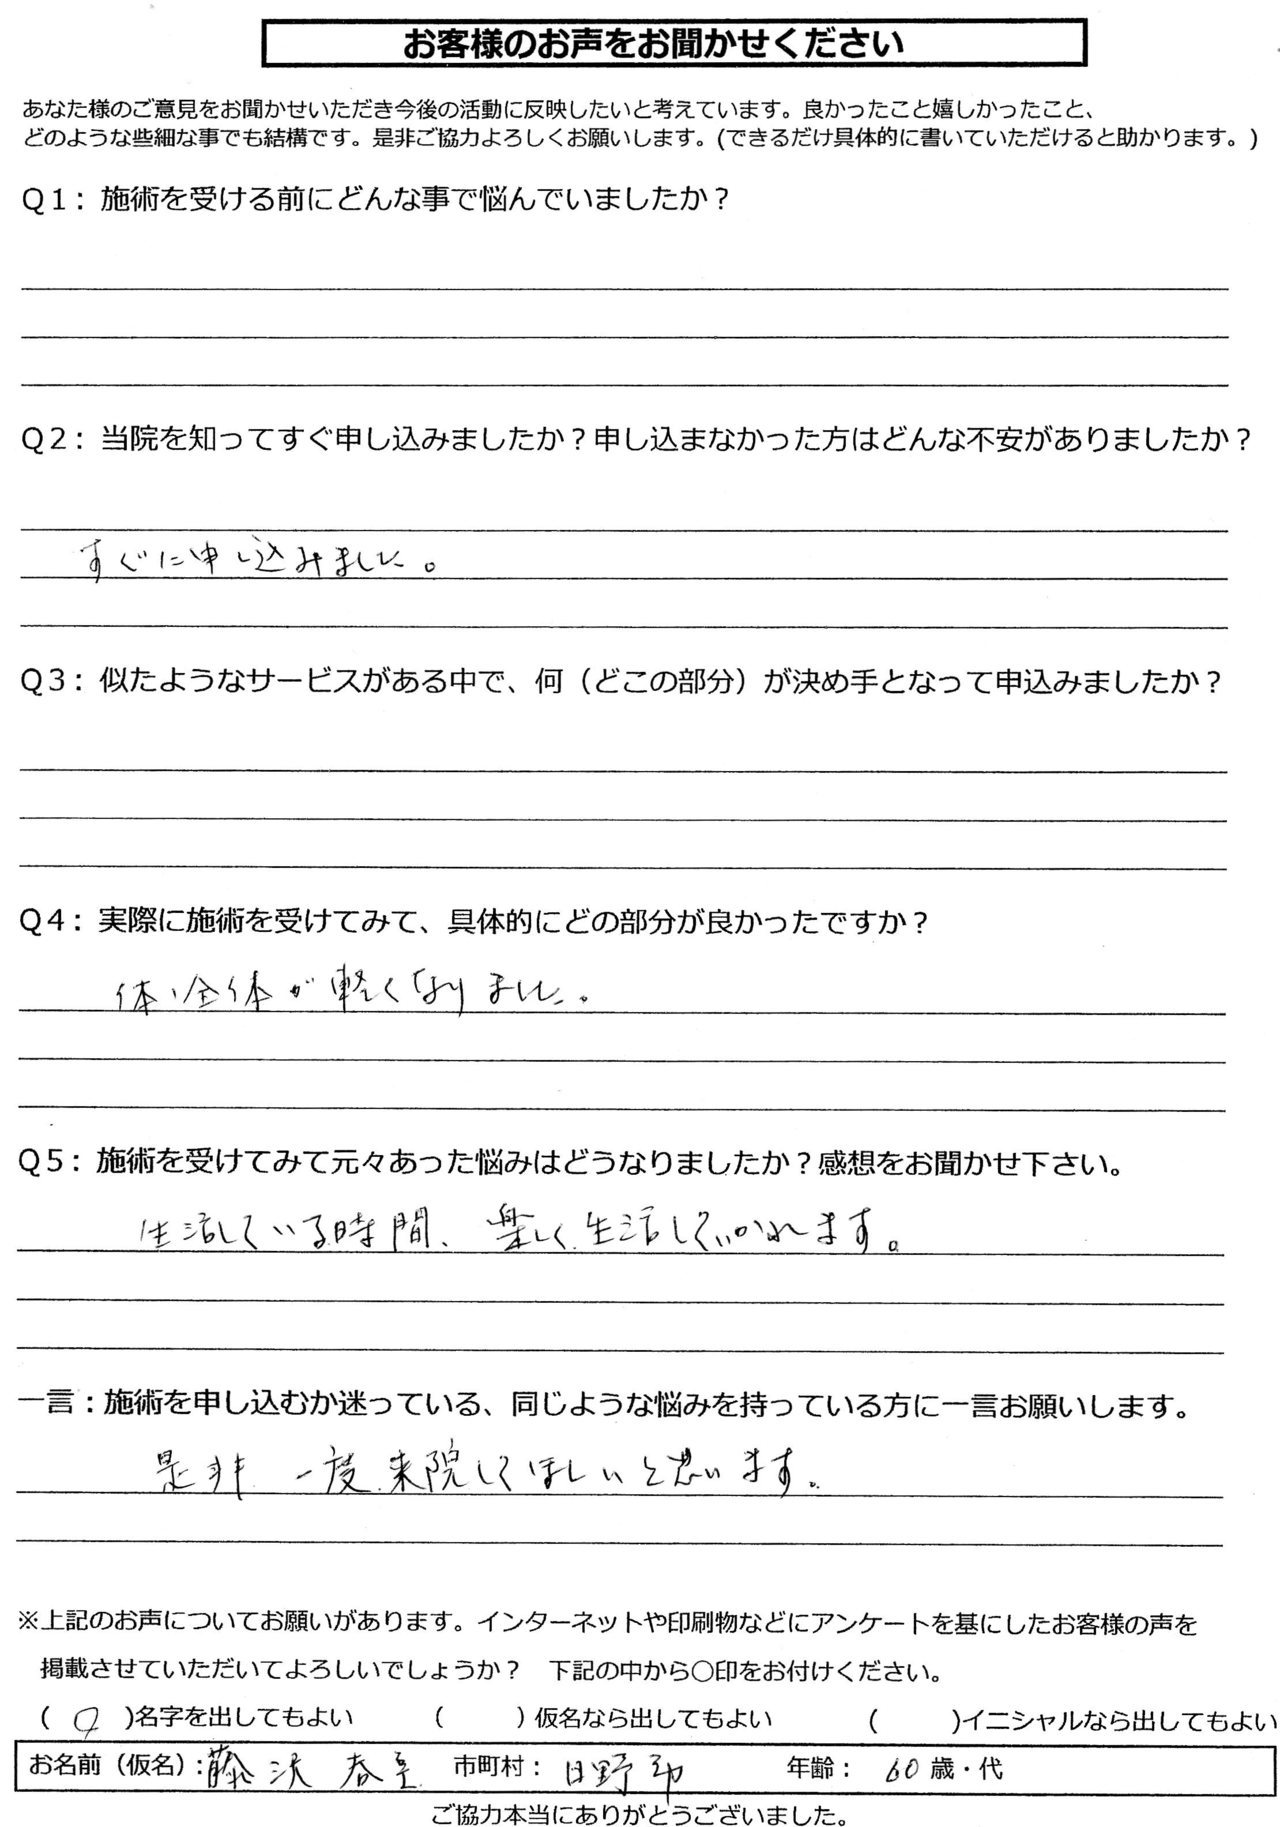 お客様のお声をお聞かせください
あなた様のご意見をお聞かせいただき今後の活動に反映したいと考えています。良かったこと嬉しかったこと、
どのような些細な事でも結構です。是非ご協力よろしくお願いします。(できるだけ具体的に書いていただけると助かります。)
Q1：施術を受ける前にどんな事で悩んでいましたか？
Q2：当院を知ってすぐ申し込みましたか？申し込まなかった方はどんな不安がありましたか？
すぐに申し込みました。
Q3：似たようなサービスがある中で、何（どこの部分）が決め手となって申込みましたか？
Q4：実際に施術を受けてみて、具体的にどの部分が良かったですか？
体全体が軽くなりました。
Q5：施術を受けてみて元々あった悩みはどうなりましたか？感想をお聞かせ下さい。
生活している時間、楽しく生活していかれます。
一言：施術を申し込むか迷っている、同じような悩みを持っている方に一言お願いします。
是非一度来院してほしいと思います。
※上記のお声についてお願いがあります。インターネットや印刷物などにアンケートを基にしたお客様の声を
掲載させていただいてよろしいでしょうか？　下記の中から〇印をお付けください。
(　〇　)名字を出してもよい　(　　)仮名なら出してもよい　(　　)イニシャルなら出してもよい
お名前（仮名）：藤沢 春　市町村：日野市　年齢：60歳・代
ご協力本当にありがとうございました。